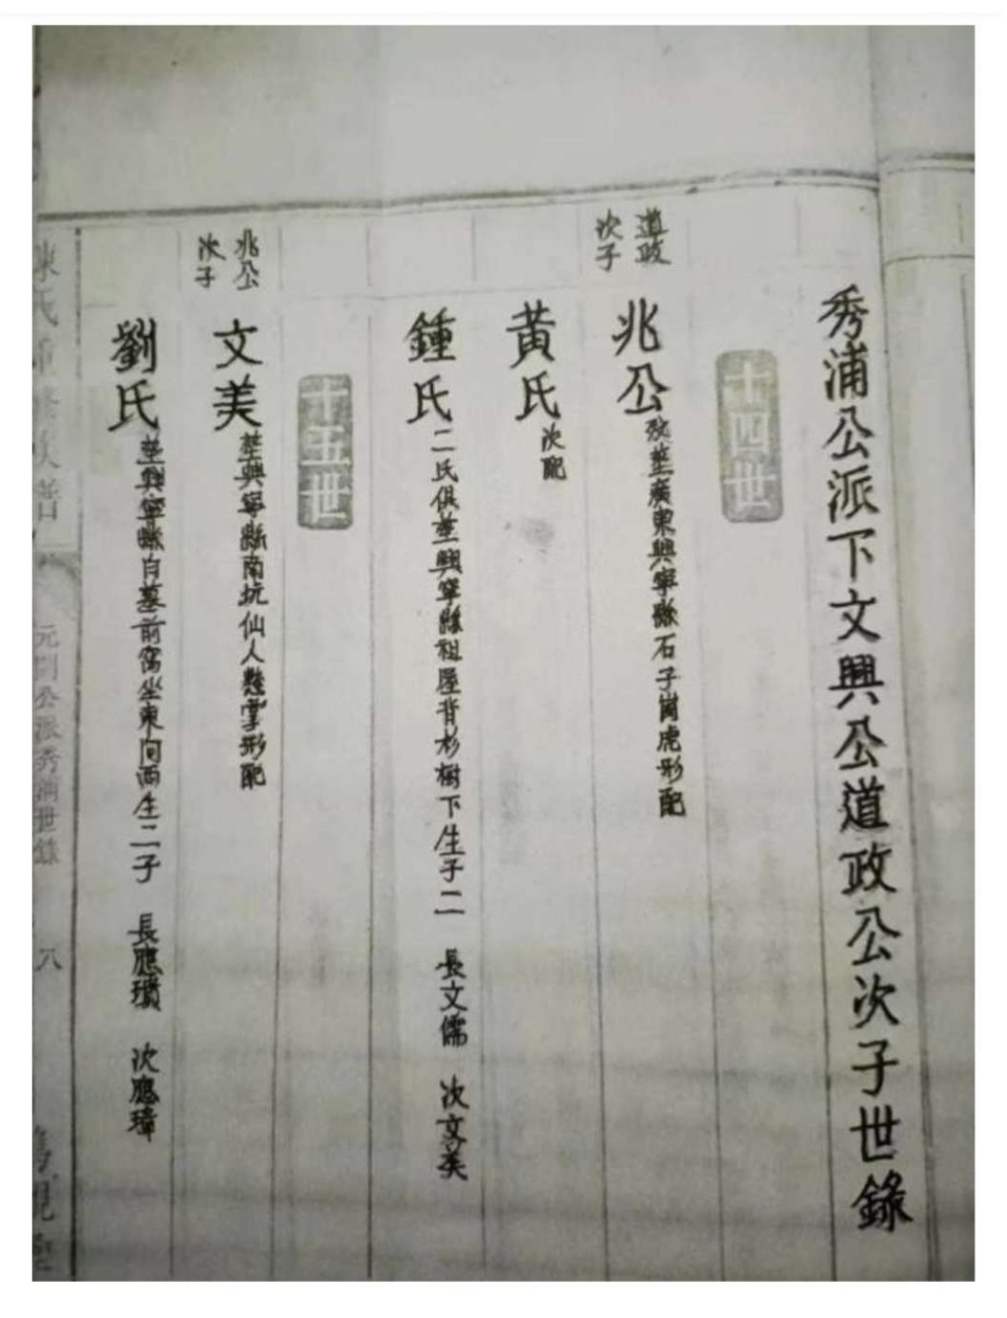 秀浦公派下文興公道政公次子世錄
十四世
道政
次子
兆公 歿塟廣東興寧縣石子崗虎形配
黃氏 次配
鍾氏 二氏俱塟興寧縣祖屋背杉樹下生子二 長文儒 次文美
十五世
兆公
次子
文美 塟興寧縣南坑仙人懸掌形配
劉氏 塟興寧縣白墓前窩坐東向西生二子 長應瓚 次應璋
氏
元公派秀浦世錄
八